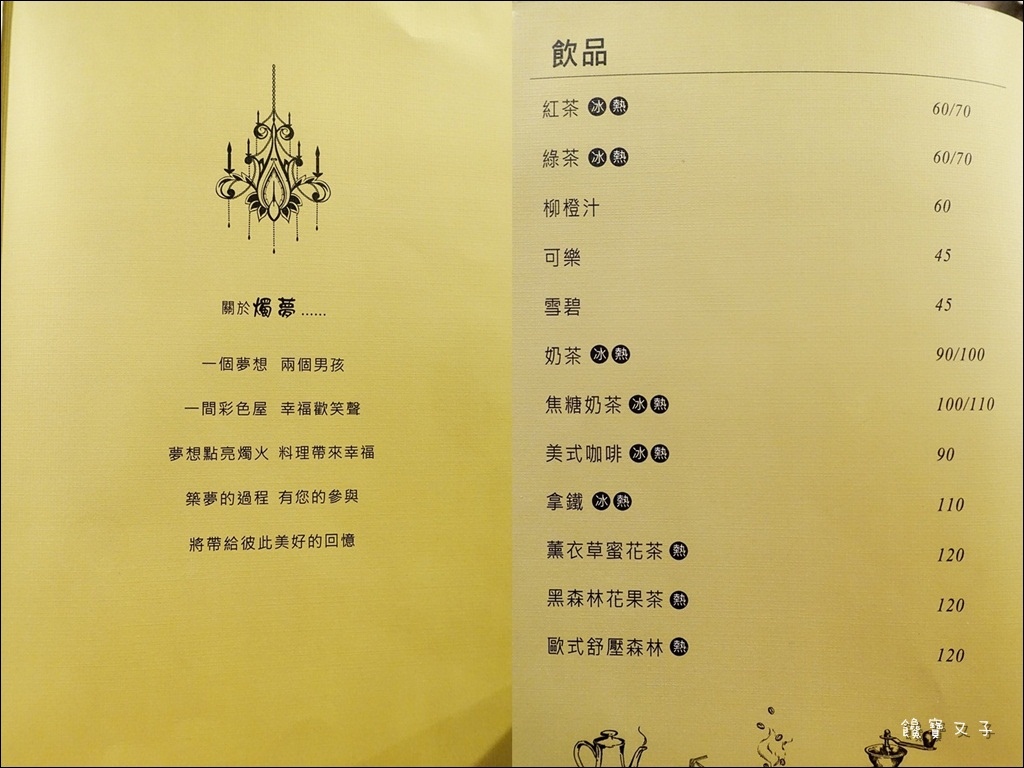 關於燭夢......
一個夢想 兩個男孩
一間彩色屋 幸福歡笑聲
夢想點亮燭火 料理帶來幸福
築夢的過程 有您的參與
將帶給彼此美好的回憶
飲品
紅茶 冰 熱 60/70
綠茶 冰 熱 60/70
柳橙汁 60
可樂 45
雪碧 45
奶茶 冰 熱 90/100
焦糖奶茶 冰 熱 100/110
美式咖啡 冰 熱 90
拿鐵 冰 熱 110
薰衣草蜜花茶 熱 120
黑森林花果茶 熱 120
歐式舒壓森林 熱 120
饞寶叉子